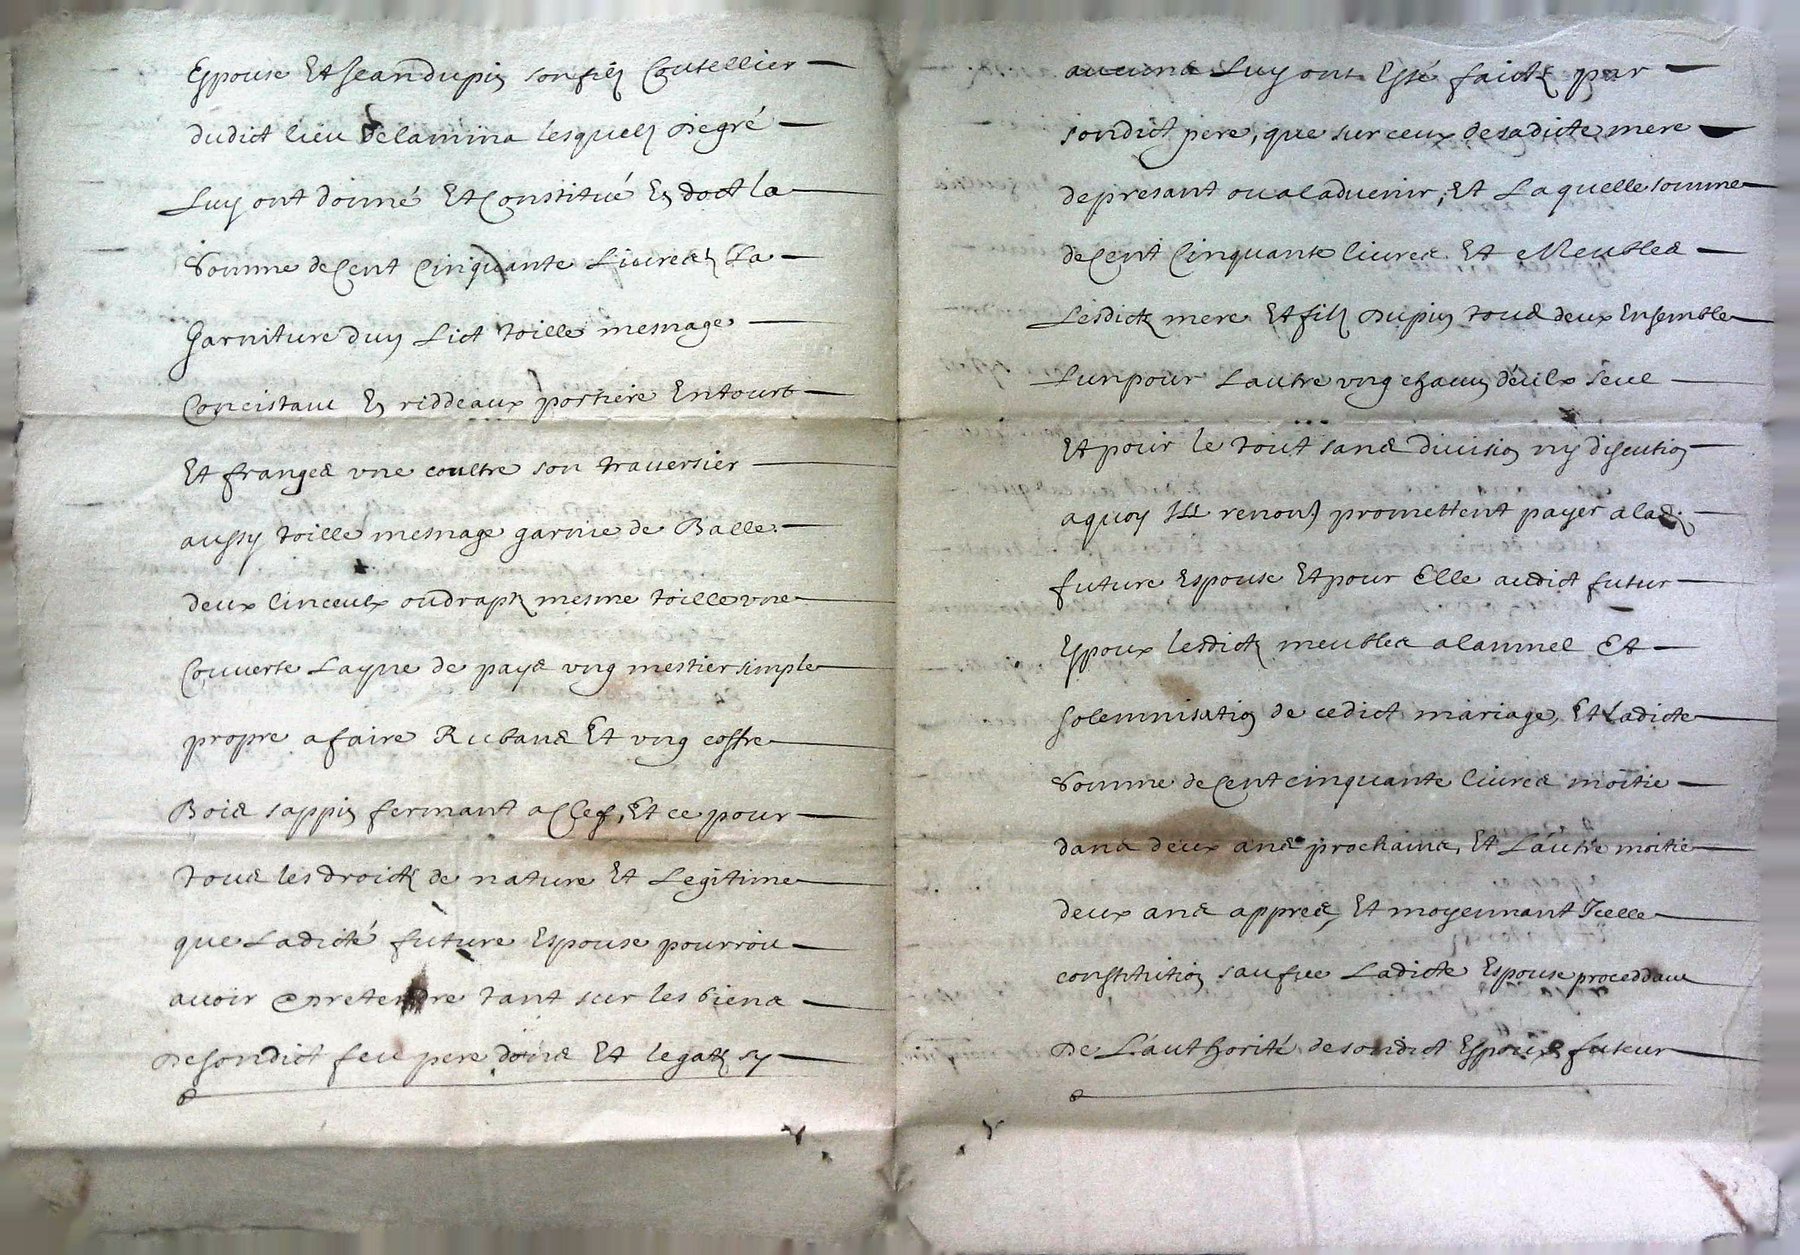 Espouse Et Jean dupin son filz Coutellier
dudict lieu de lamina lesquelz de gré
Luy ont donné Et Constitué En doct la
Somme de Cent Cinquante Livres, La
Garniture dun Lict toille mesnage
Concistant En riddeaux portiere Entourt
Et franges vne coultre son traversier
aussy toille mesnage garnie de Balle
deux linceulx ou drapz mesme toille vne
Couverte Layne de pays vng mestier simple
propre a faire Rubans Et vng coffre
Bois sappin fermant a Clef, Et ce pour
tous les droictz de nature Et Legitime
que Ladicte future Espouse pourroit
avoir Et pretendre tant sur les biens
de sondict feu pere dons Et legatz sy
aucuns Luy ont Esté faictz par
sondict pere, que sur ceux de sadicte mere
de presant ou a ladvenir, Et Laquelle somme
de Cent Cinquante livres Et Meubles
Lesdictz mere Et filz dupin tous deux Ensemble
Lun pour Lautre vng chacun deulx seul
Et pour le tout sans division ny discution
a quoy Ilz renonc promettent payer a lad.
future Espouse Et pour Elle audict futur
Espoux lesdictz meubles a lannel Et
Solemnisation de cedict mariage, Et Ladicte
Somme de Cent cinquante livres moitie
dans deux ans prochains, Et Lautre moitie
deux ans appres, Et moyennant Icelle
constitution saufvee Ladicte Espouse proceddant
de Lauthorité de sondict Espoux futeur